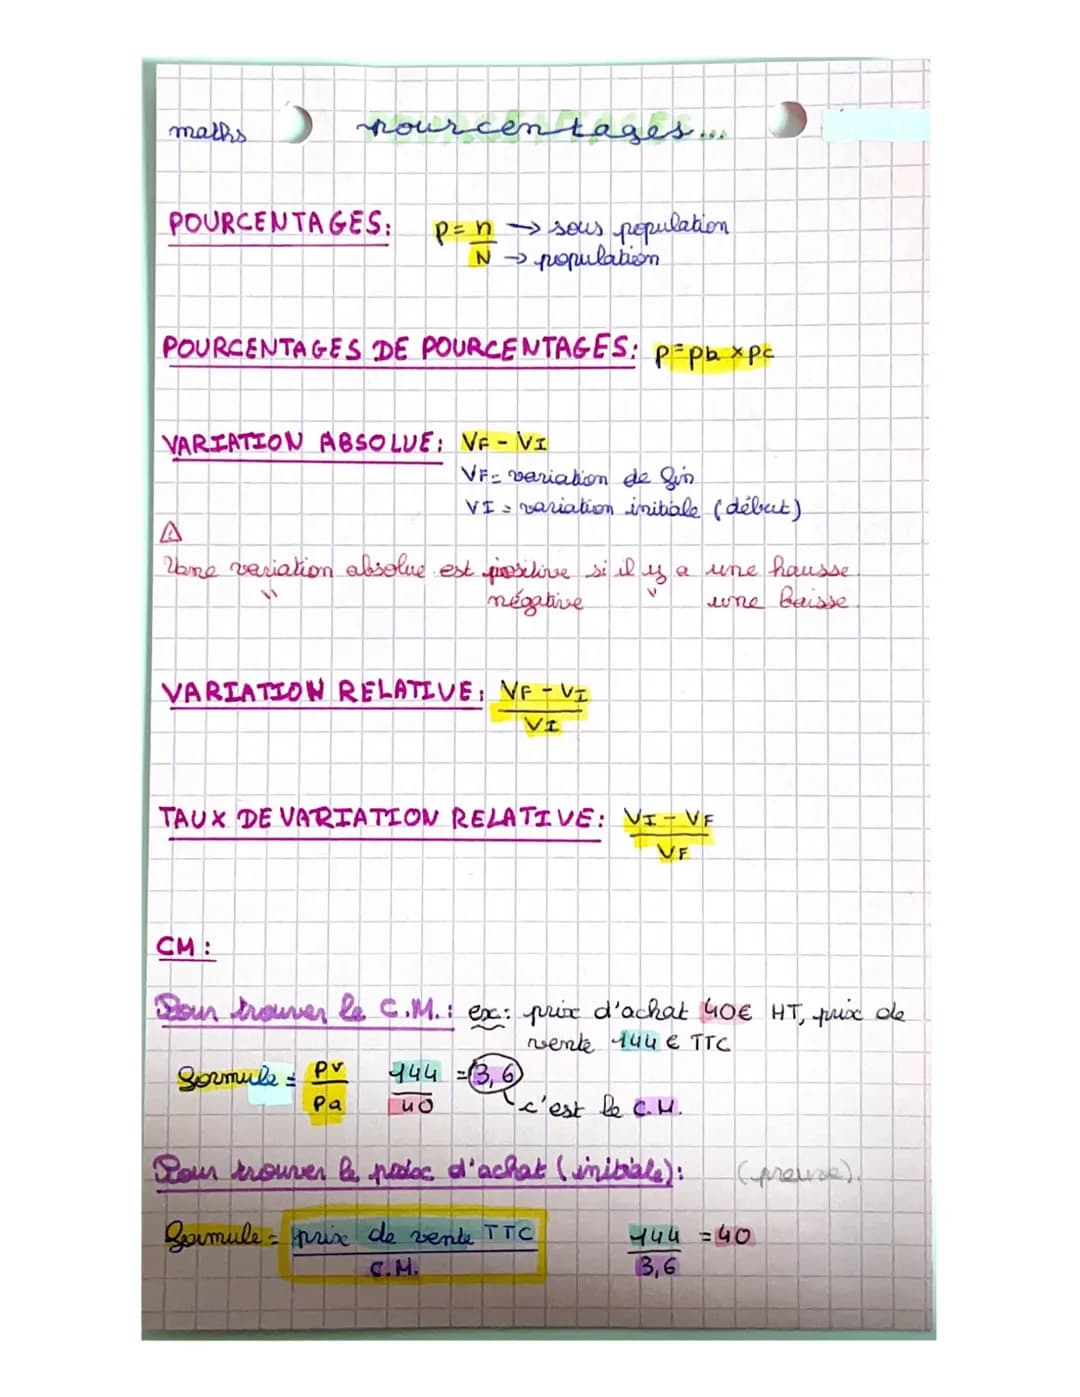 maths pourcentages...
POURCENTAGES: p = n → sous population
N → population
POURCENTAGES DE POURCENTAGES: p = pb x pc
VARIATION ABSOLUE: VF - VI
VF = variation de fin
VI = variation initiale (début)
⚠
Une variation absolue est positive si il y a une hausse
" négative " une baisse
VARIATION RELATIVE: VF - VI
VI
TAUX DE VARIATION RELATIVE: VI - VF
VF
CM :
Pour trouver le C.M. : ex: prix d'achat 40€ HT, prix de
vente 144 € TTC
formule = PV 144 = 3,6
Pa 40 c'est le C.M.
Pour trouver le d'achat (initiale): (preuve)
formule = prix de vente TTC 144 = 40
C.M. 3,6